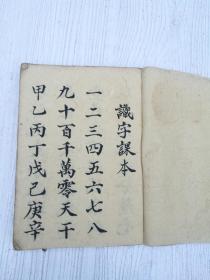 識字課本
一二三四五六七八
九十百千萬零天干
甲乙丙丁戊己庚辛